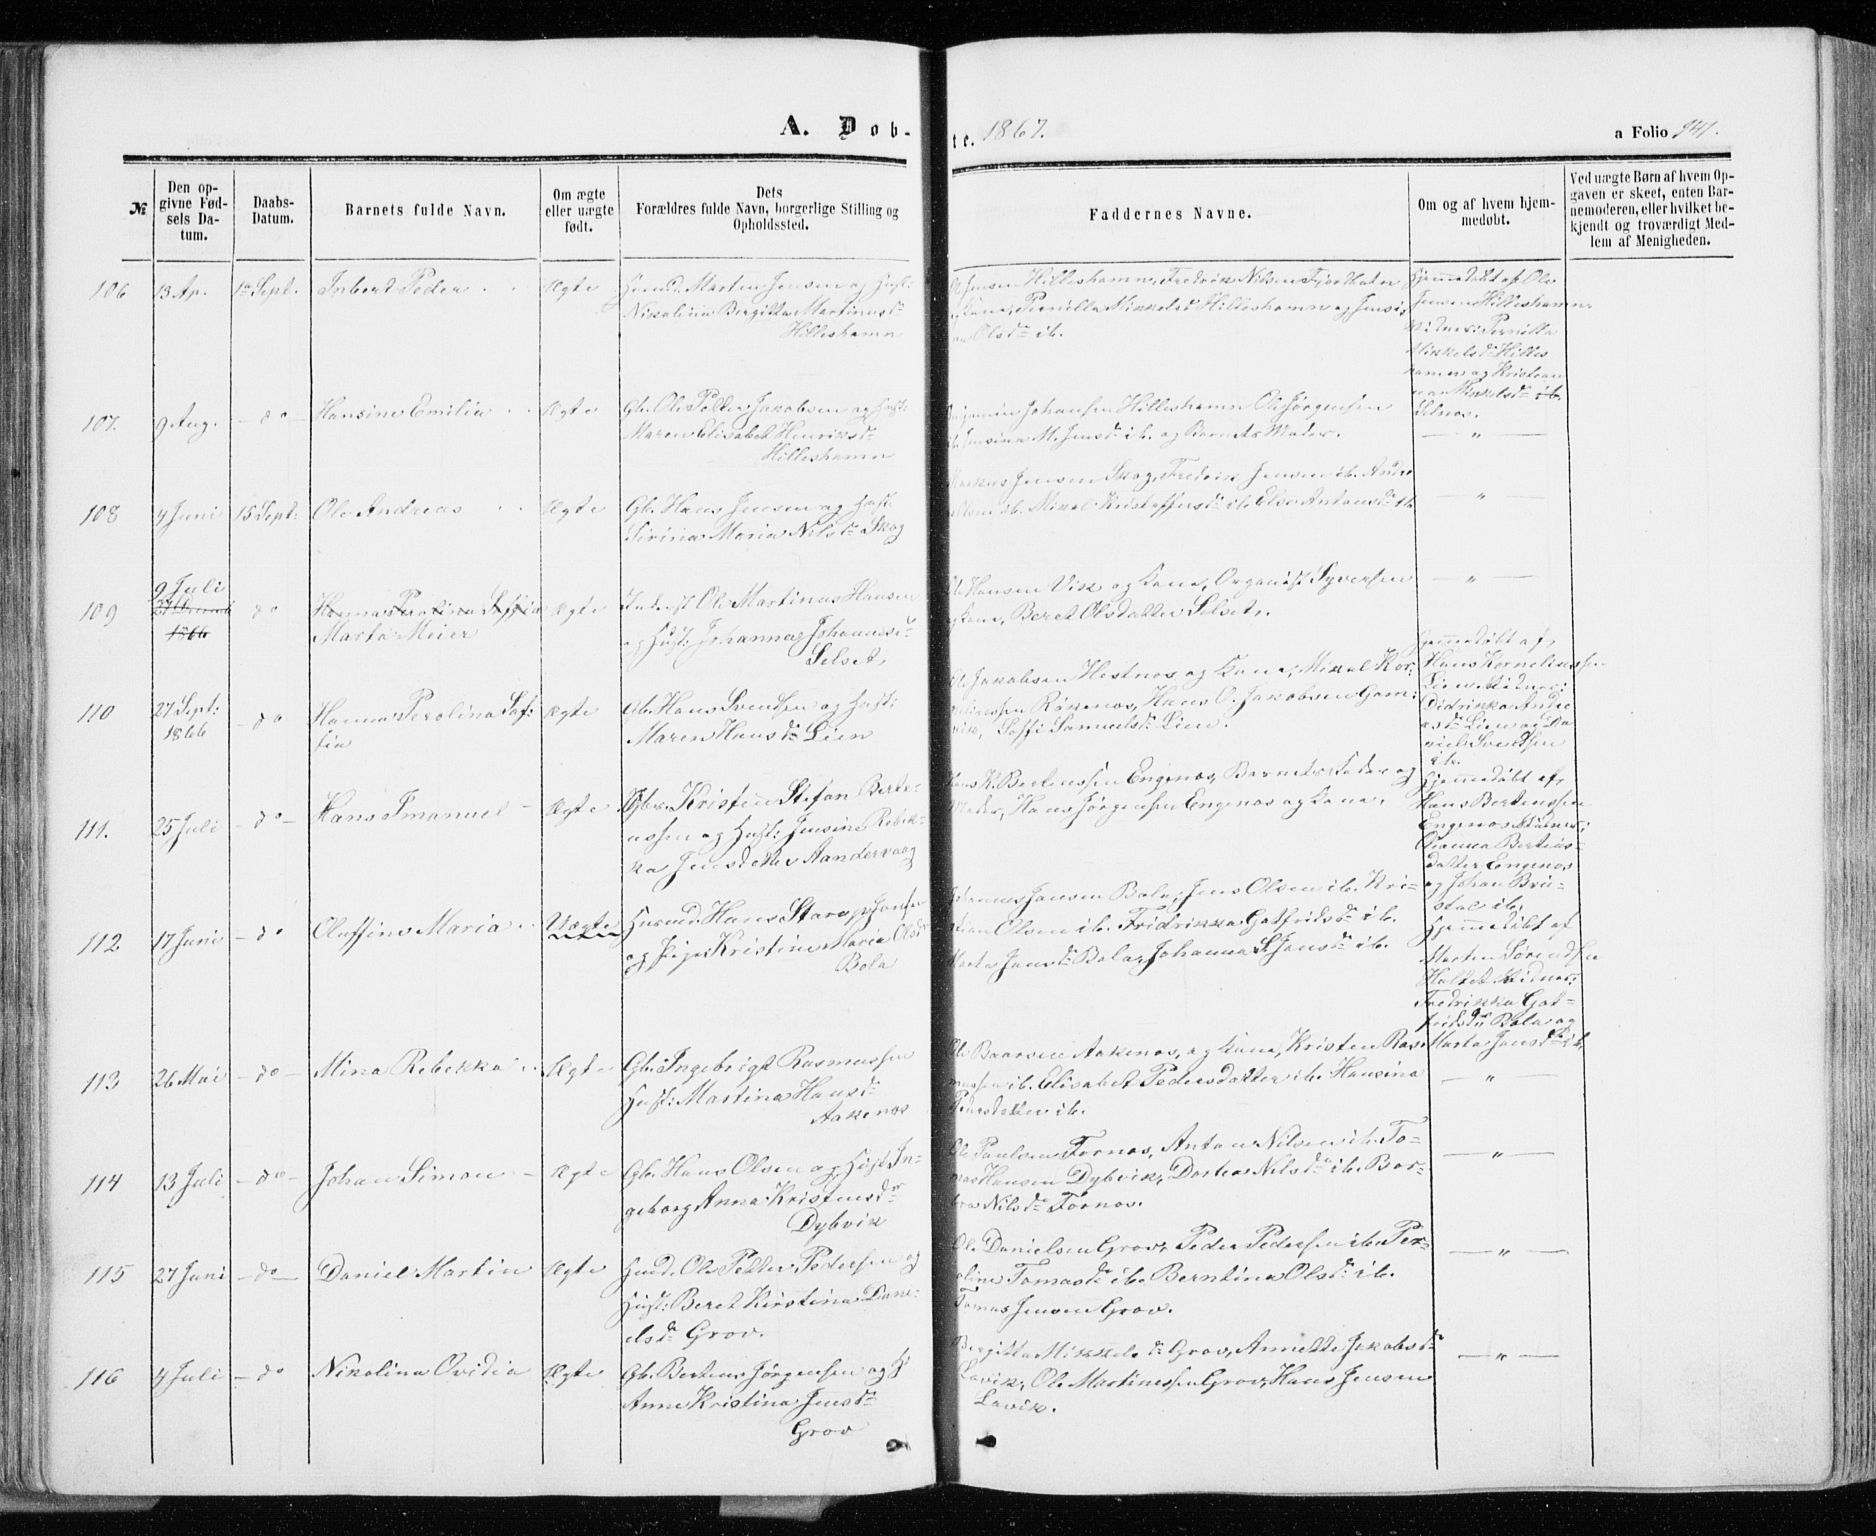 A. Døb-
te. 1867.
a Folio 941.
№
Den op-
givne Fød-
sels Da-
tum.
Daabs-
Datum.
Barnets fulde Navn.
Om ægte
eller uægte
født.
Dets
Forældres fulde Navn, borgerlige Stilling og
Opholdssted.
Faddernes Navne.
Om og af hvem hjem-
medøbt.
Ved uægte Børn af hvem Op-
gaven er skeet, enten Bar-
nemoderen, eller hvilket be-
kjendt og troværdigt Med-
lem af Menigheden.
106 13 Ap. 1ste Sept. Inbert Peder Ægte Huusmd. Morten Jensen og Hust:
Nikolina Bergitta Martinusdr
Hilleshamn
Jensen Hilleshamn, Fredrik Nilsen Fjordbotn
Kone, Pernilla Mikkelsdr Hilleshamn og Jensi-
Olsdr ib.
Hjemmedøbt af Ole
Jensen Hilleshamn.
Vidner: Pernilla
Mikkelsdr Hilles
hamn og Kristian
Mikkelsdr ib.
Selnos.
107. 9 Aug. — do — Hansine Emilia Ægte Gb. Ole Petter Jakobsen og Hust:
Maren Elisabet Henriksdr
Hilleshamn
Benjamin Johansen Hilleshamn Ole Jørgensen
Jensina M. Jensdr ib. og Barnets Moder.
— " —
108 4 Juni 15 Sept: Ole Andreas Ægte Gb. Hans Jensen og Hust:
Sirina Maria Nilsdr Skog
Markus Jensen Skog, Fredrik Jensen ib. Andre
Olsen ib. Mikal Kristoffersdr ib. Else Antonsdr ib.
— " —
109 9 Juli
1866
do Hanna Perolina Soffia
Marta Meier
Ægte Inderst Ole Martinus Hansen
og Hust: Johanna Johannesdr
Selset,
Ole Hansen Vik og Kone, Organist Syversen
og Kone, Beret Olsdatter Selset.
— " —
110 27 Sept:
1866
— do Hanna Perolina Sof:
fia
Ægte Gb. Hans Svendsen og Hust:
Maren Hansdr Lien
Ole Jakobsen Hestnes og Kone, Mikal Kor:
neliussen Rökenes, Hans O. Jakobsen Gam:
vik, Soffi Samuelsdr Lien.
Hjemmedøbt af
Hans Korneliussen
Lien. Vidner:
Didrikka Andre
asdr Lien og Da
niel Svendsen
ib.
111. 25 Juli — do — Hans Imanuel Ægte Gbr. Kristen Stefan Berte-
ussen og Hust: Jensine Rebek-
ka Jensdatter Aandervaag
Hans K. Berteussen Engenes, Barnets Fader og
Moder, Hans Jørgensen Engenes og Kone.
Hjemmedøbt af
Hans Berteussen
Engenes. Vidner:
Oianna Berteus-
datter Engenes
og Johan Bru-
stal ib.
112 17 Juni — do Oluffine Maria Uægte Huusmd. Hans Starup Jansen
og Pige Kristine Maria Olsdr
Bola
Johannes Jansen Bola, Jens Olsen ib. Kri-
stian Olsen ib. Fridrikka Gotfridsdr ib.
Marta Jansdr Bola, Johanna S. Jansdr ib.
Hjemmedøbt af
Morten Sørensen
Holtet. Vidner:
Fredrikka Got-
fridsdr Bola og
Marta Jansdr ib.
113 26 Mai — do — Mina Rebekka Ægte Gb. Ingebrigt Rasmussen
Hust: Martina Hansdr
Aakenes
Ole Baarsen Aakenes, og Kone, Kristen Ras-
mussen ib. Elisabet Pedersdatter ib. Hansina
Pedersdatter ib.
— " —
114 13 Juli — do — Johan Simon Ægte Gb. Hans Olsen og Hust: In-
geborg Anna Kristensdr
Dybvik
Ole Paulsen Fornes, Anton Nilsen ib. To-
mas Hansen Dybvik, Dortea Nilsdr ib. Bar-
bra Nilsdr Fornes.
— " —
115 27 Juni — do — Daniel Martin Ægte Huusmd. Ole Petter Pedersen og
Hust: Beret Kirstina Dani-
elsdr Grov.
Ole Danielsen Grov, Peder Pedersen ib. Per-
oline Tomasdr ib. Berntina Olsdr ib.
Tomas Jensen Grov.
— " —
116 4 Juli — do Nikolina Ovidia Ægte Gb. Berteus Jørgensen og H:
Anne Kristina Jensdr
Grov
Bergitta Mikkelsdr Grov, Annette Jakobsdr
Lavik, Ole Martinussen Grov, Hans Jensen
Lavik.
— " —